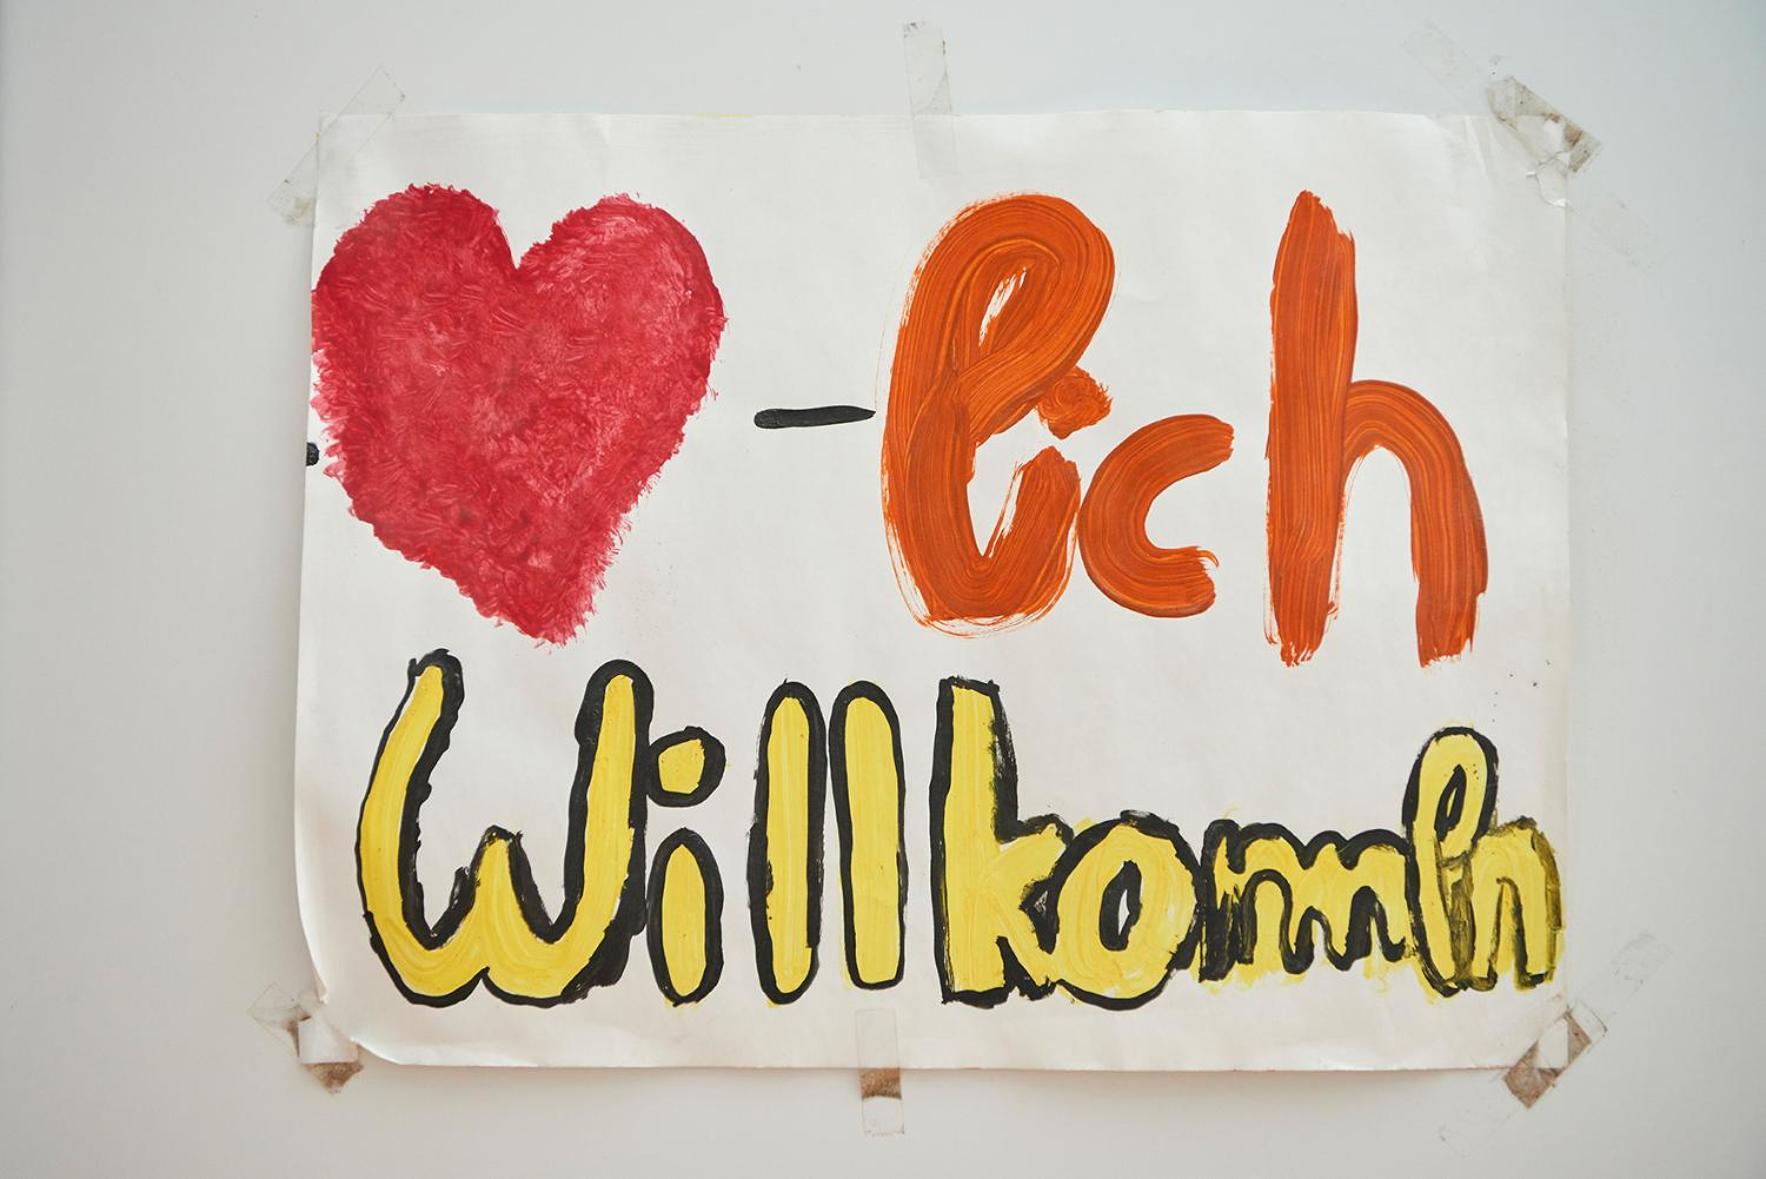 ❤-lich
Willkomen